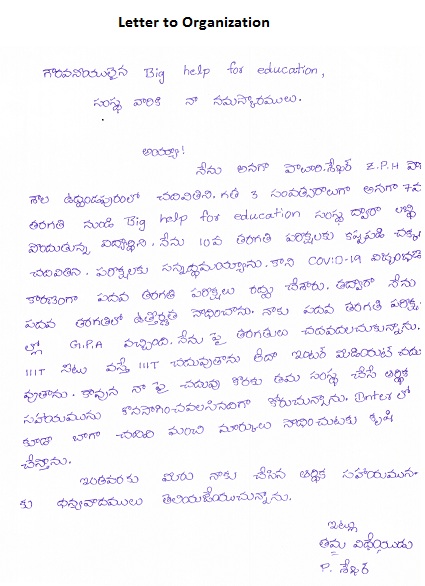 Letter to Organization
గౌరవనీయులైన Big help for education,
సంస్థ వారికి నా నమస్కారములు.
అయ్యా!
నేను అనగా పాలూరి.శేఖర్ Z.P.H పా
ఠశాల ఉద్దండపురంలో చదివితిని. గత 3 సంవత్సరాలుగా అనగా 7వ
తరగతి నుండి Big help for education సంస్థ ద్వారా లబ్ధి
పొందుతున్న విద్యార్థిని. నేను 10వ తరగతి పరీక్షలకు కష్టపడి చక్కగా
చదివితిని. పరీక్షలకు సన్నద్ధమయ్యాను. కాని COVID-19 విజృంభణ
కారణంగా పదవ తరగతి పరీక్షలు రద్దు చేశారు. తద్వారా నేను
పదవ తరగతిలో ఉత్తీర్ణత సాధించాను. నాకు పదవ తరగతి పరీక్ష
ల్లో G.P.A వచ్చింది. నేను పై తరగతులు చదవదలచుకున్నాను.
IIIT సీటు వస్తే IIIT చదువుతాను లేదా ఇంటర్ మీడియట్ చదు
వుతాను. కావున నా పై చదువు కొరకు తమ సంస్థ చేసే ఆర్థిక
సహాయమును కొనసాగించవలసినదిగా కోరుచున్నాను. Interలో
కూడా బాగా చదివి మంచి మార్కులు సాధించుటకు కృషి
చేస్తాను.
ఇంతవరకు మీరు నాకు చేసిన ఆర్థిక సహాయమున
కు ధన్యవాదములు తెలియజేయుచున్నాను.
ఇట్లు
తమ విధేయుడు
P. శేఖర్